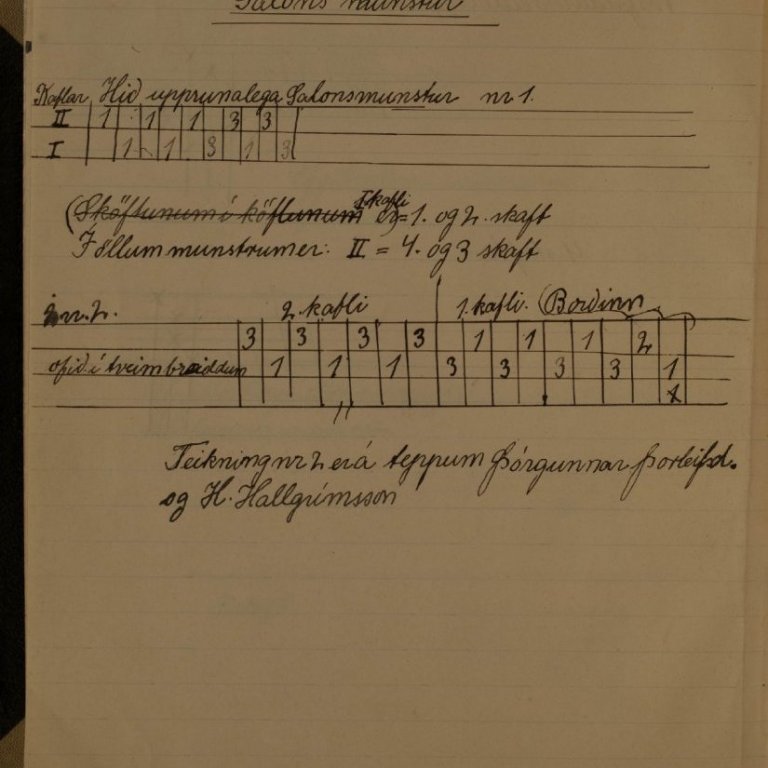 Salons munstur
Kaflar Hið upprunalega Salonsmunstur nr 1.
II 1 1 1 3 3
I 1 1 3 1 3
(Sköftunum í köflunum I kafli er)=1. og 2. skaft
Í öllum munstrum er: II = 4. og 3 skaft
nr. 2. 2. kafli 1. kafli. (Borðinn
3 3 3 3 1 1 1 2
ofið í tveim breiddum 1 1 1 3 3 3 3 1
x
Teikning nr 2 er á teppum Þórgunnar Þorleifsd.
og H. Hallgrímsson